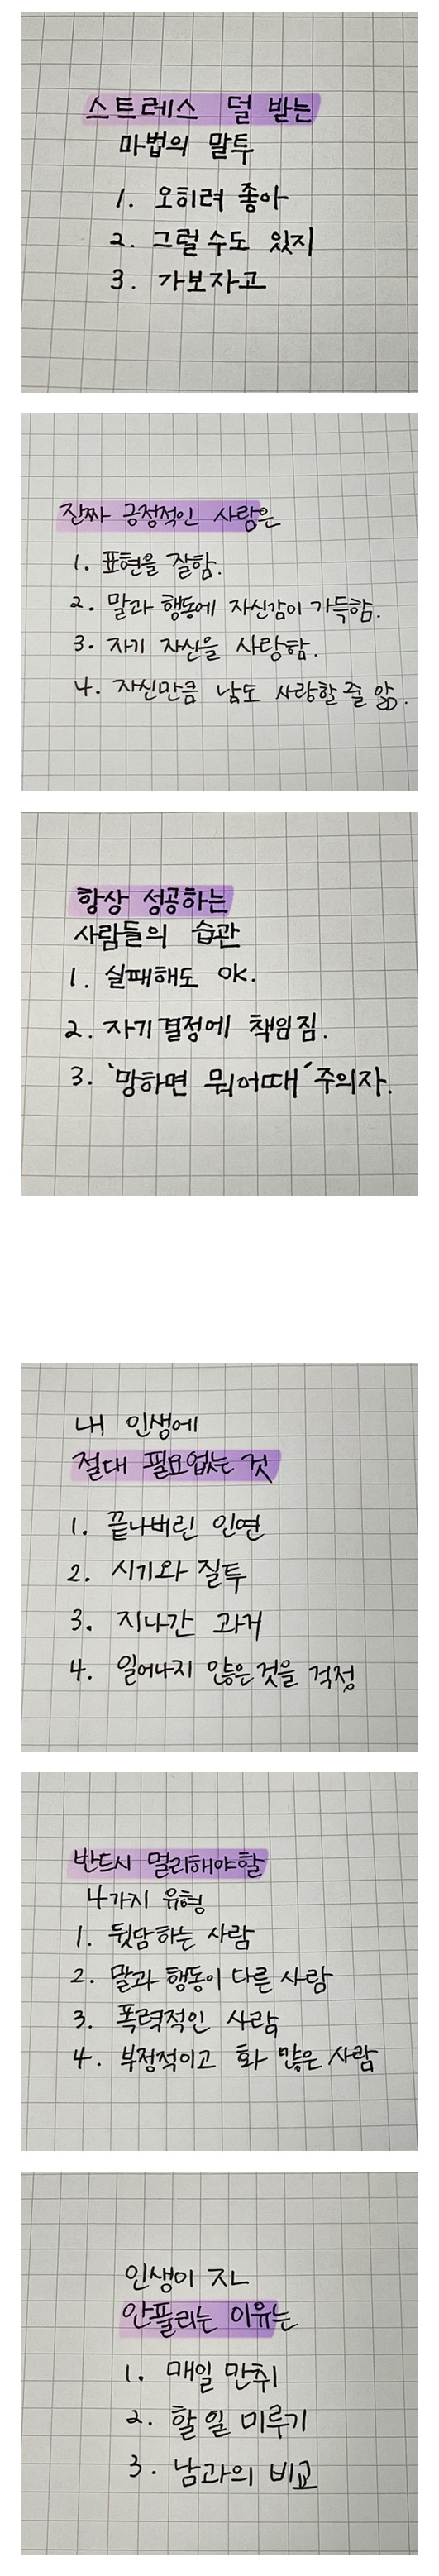 스트레스 덜 받는
마법의 말투
1. 오히려 좋아
2. 그럴 수도 있지
3. 가보자고
진짜 긍정적인 사람은
1. 표현을 잘함.
2. 말과 행동에 자신감이 가득함.
3. 자기 자신을 사랑함.
4. 자신만큼 남도 사랑할 줄 앎.
항상 성공하는
사람들의 습관
1. 실패해도 OK.
2. 자기 결정에 책임짐.
3. '망하면 뭐어때' 주의자.
내 인생에
절대 필요없는 것
1. 끝나버린 인연
2. 시기와 질투
3. 지나간 과거
4. 일어나지 않은 것을 걱정
반드시 멀리해야할
4가지 유형
1. 뒷담하는 사람
2. 말과 행동이 다른 사람
3. 폭력적인 사람
4. 부정적이고 화 많은 사람
인생이 지ㄴ
안풀리는 이유는
1. 매일 만취
2. 할 일 미루기
3. 남과의 비교